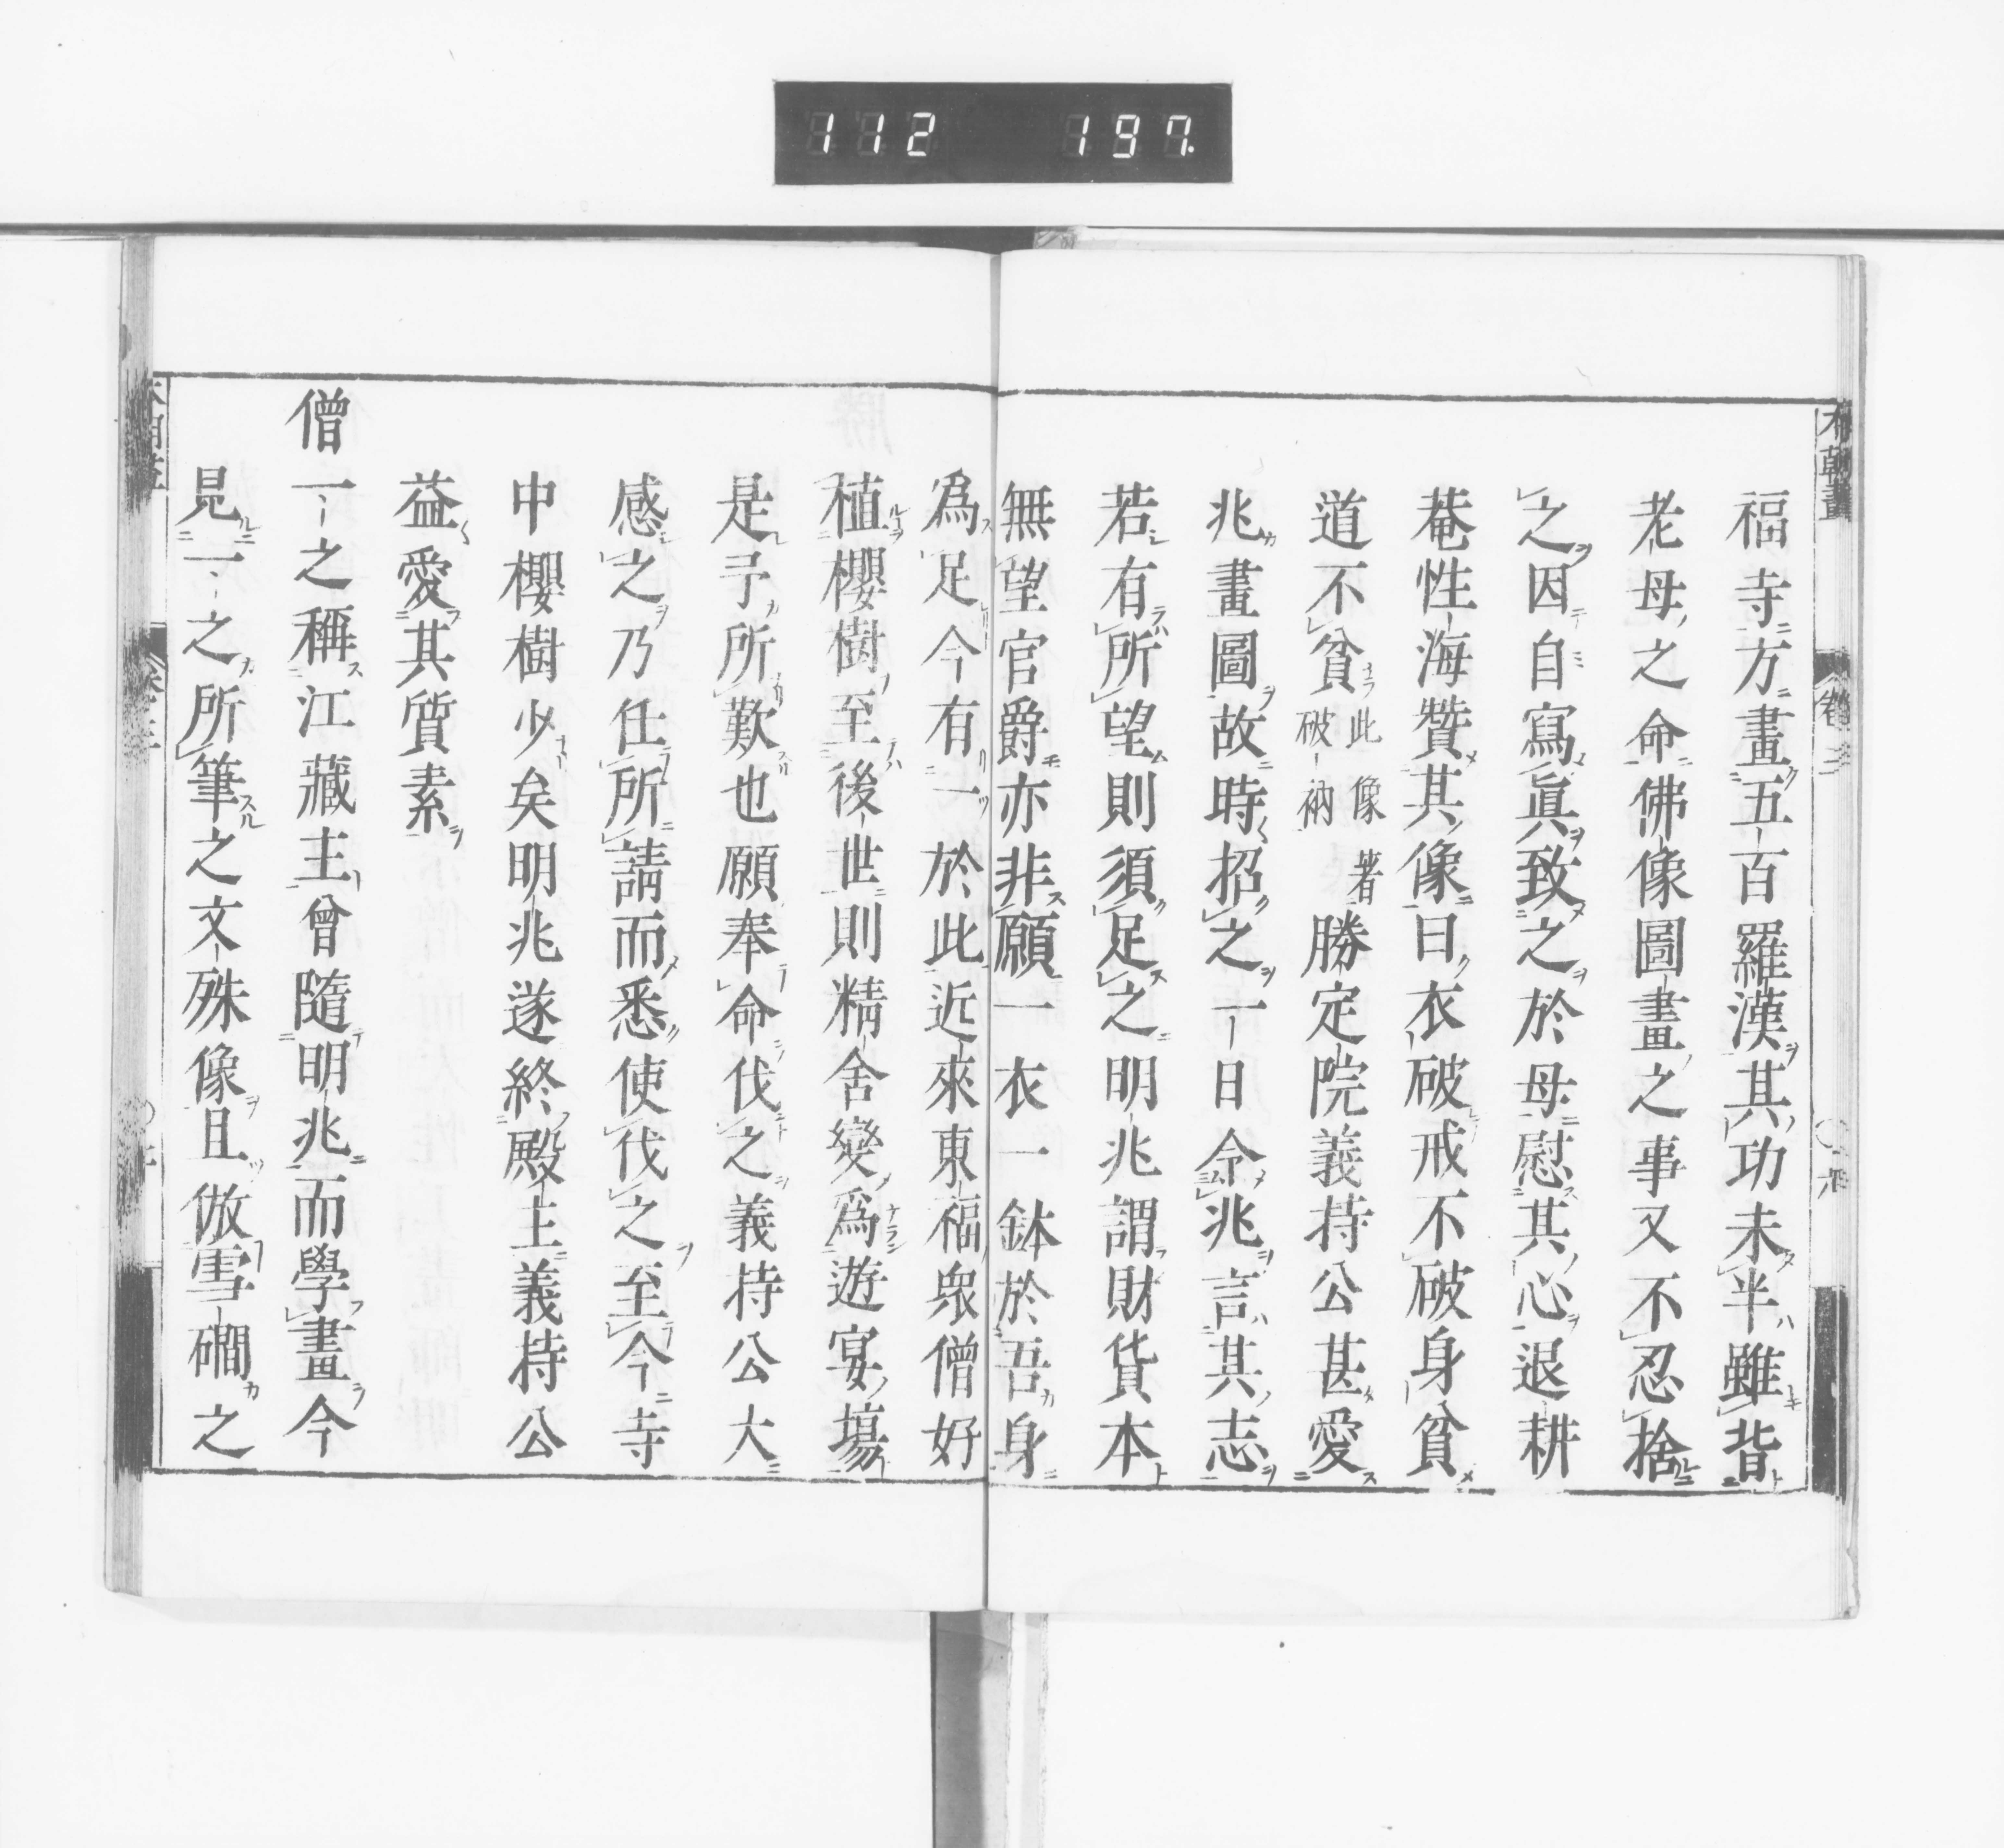 112 197.
福寺方畫五百羅漢其功未半雖背
老母之命佛像圖畫之事又不忍捨
之因自寫眞致之於母慰其心退耕
菴性海贊其像曰衣破戒不破身貧
道不貧此像著破衲勝定院義持公甚愛
兆畫圖故時招之一日命兆言其志
若有所望則須足之明兆謂財貨本
無望官爵亦非願一衣一鉢於吾身
爲足今有一於此近來東福衆僧好
植櫻樹至後世則精舍變爲遊宴塲
是予所歎也願奉命伐之義持公大
感之乃任所請而悉使伐之至今寺
中櫻樹少矣明兆遂終殿主義持公
益愛其質素
僧一之稱江藏主曾隨明兆而學畫今
見一之所筆之文殊像且倣雪礀之